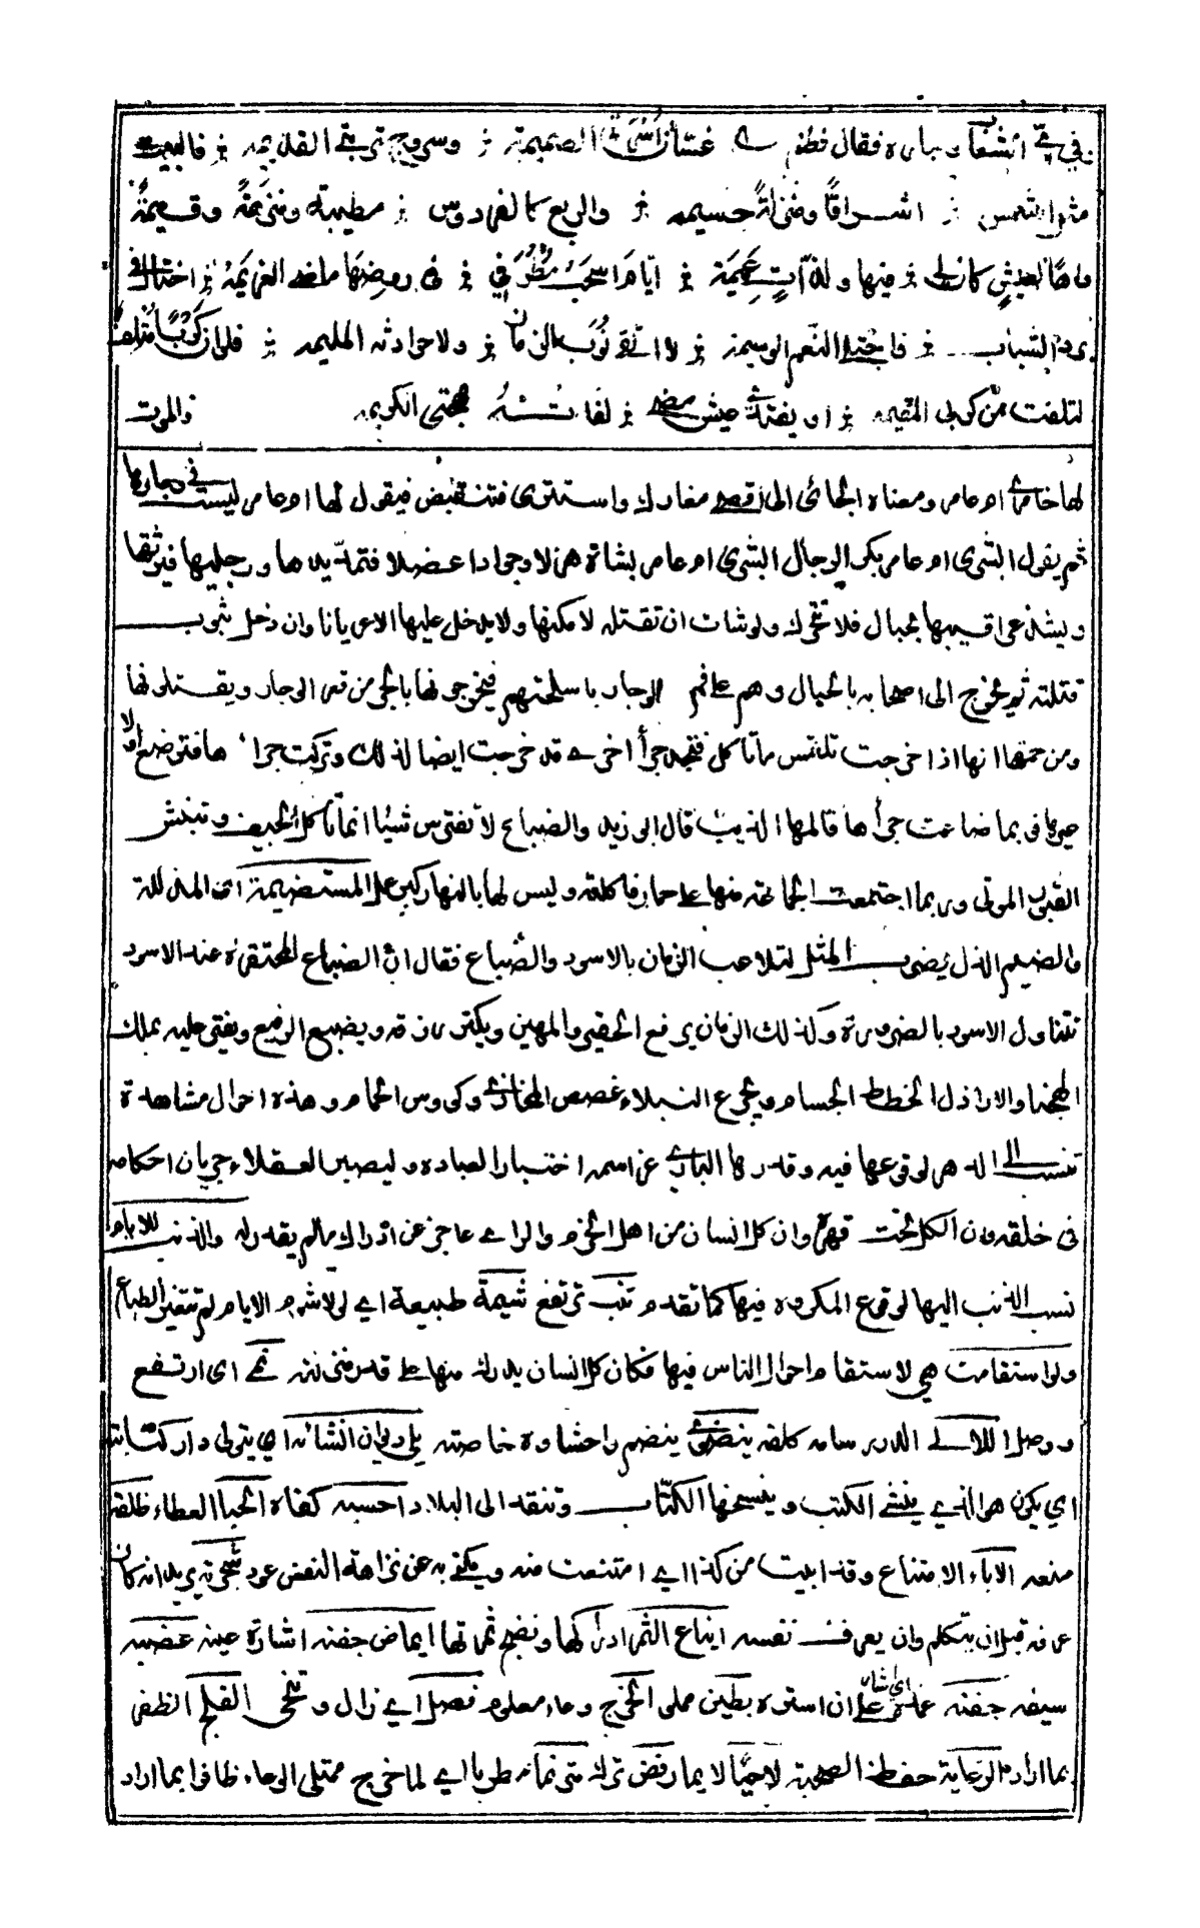 في عيّ انشقا وباره فقال فظم غسّان اُسْرَتي الصميمة ؞ وسروج تربتي القديمه ؞ فالبيت
مثل الشمس ؞ اشراقًا ومنزلةً جسيمه ؞ والربع كالفردوس ؞ مطيبة ومنزهةً وقيمةً
واهًا لعيش كان لي ؞ فيها ولذّاتٍ عميمة ؞ ايّامَ اسحَبُ مُطْرَفي ؞ في روضها ماضي العزيمه ؞ اختال في
برد الشباب ؞ واجتلي النعم الوسيمة ؞ لا اتقي نُوَبَ الزمان ؞ ولا حوادثه المليمه ؞ فلو ان كَرْبًا مُتلفٌ
لتلفت من كربي المقيمه ؞ او يفتدي عيش مضى ؞ لفدته مهجتي الكريمه والموت
لها خامري ام عامر ومعناه الجائي الى اقصى مغارك واستتري فتنقبض فيقول لها ام عامر ليست في وجارها
ثم يقول ابشري ام عامر بكمر الرجال ابشري ام عامر بشاة هزلا وجرادا عضلا فتمدّ يدها ورجليها فيوثقا
ويشد عراقيبها بحبال فلا تتحرك ولو شات ان تقتله لامكنها ولا يدخل عليها الا عريانا وان دخل بثوب
قتلته ثم يخرج الى اصحابه بالحبال وهم على فم الوجار باسلحتهم فيخرجونها بالجر من قعر الوجار ويقتلونها
ومن حمقها انها اذا خرجت تلتمس ما تاكل فتجد جرأ اخرى قد خرجت ايضا لذلك وتركت جراءها فترضع اولا
غيرها فربما ضاعت جرأها قالها الذيب قال ابي زيد والضباع لا تفترس شيا انما تاكل الجيف وتنبش
القبور الموتى وربما اجتمعت الجماعة منها على حمار فاكلته وليس لها بالنهار كبر على المستضيمة اي المذللة
والضيم الذل يضرب المثل لتلاعب الزمان بالاسود والضباع فقال انّ الضباع المحتقرة عند الاسود
تتناول الاسود بالضرورة وكذلك الزمان يرفع الحقير والمهين ويكثر رزقه ويضيع الرفيع ويفتر عليه بملك
الهجنا والاراذل الخطط الجسام ويجرع النبلاء غصص المخازي وكووس الحمام وهذه احوال مشاهدة
تنسب الى الدهر لوقوعها فيه وقدرها الباري عز اسمه اختبارا لعباده وليصبر العقلاء جريان احكامه
في خلقه وان الكل تحت قهره وان كل انسان من اهل الحزم والراي عاجز عن ادراك ما لم يقدر له والذنب للايام
نسب الذنب اليها لوقوع المكروه فيها كما تقدم تنب ترتفع شيمة طبيعة اي لولا شوم الايام لم تتغير الطباع
ولو استقامت هي لاستقام احوال الناس فيها فكان كل انسان يدرك منها على قدر منزلته نمى اى ارتفع
ووصل اللالي الدرر سامه كلفه ينضوي ينضم واحشاوه خاصته يلي ديوان انشائه اي يتولى دار كتابته
اي يكون هو الذي ينشي الكتب وينسخها الكتّاب وتنقد الى البلاد احسبه كفاه الحبا العطاء ظلفه
منعه الاباء الامتناع وقد ابيت من كذا اي امتنعت منه ويكنى به عن نزاهة النفس عود شجرته يريد انه كان
عرفه قبل ان يتكلم وان يعرف نفسه ايناع الثمر ادراكها ونضج ثمرتها ايماض جفنه اشارة عينه عضبه
سيفه جفنه غمده على ان استره بطين مملى الخرج وعاء معلوم فصل اي زال وتنحى الفلج الظفر
بما اراد الرعاية حفظ الصحبة لاحيًا لايما رفض ترك متى نمانه طربا اي لما خرج ممتلى الوعاء ظافرا بما اراد